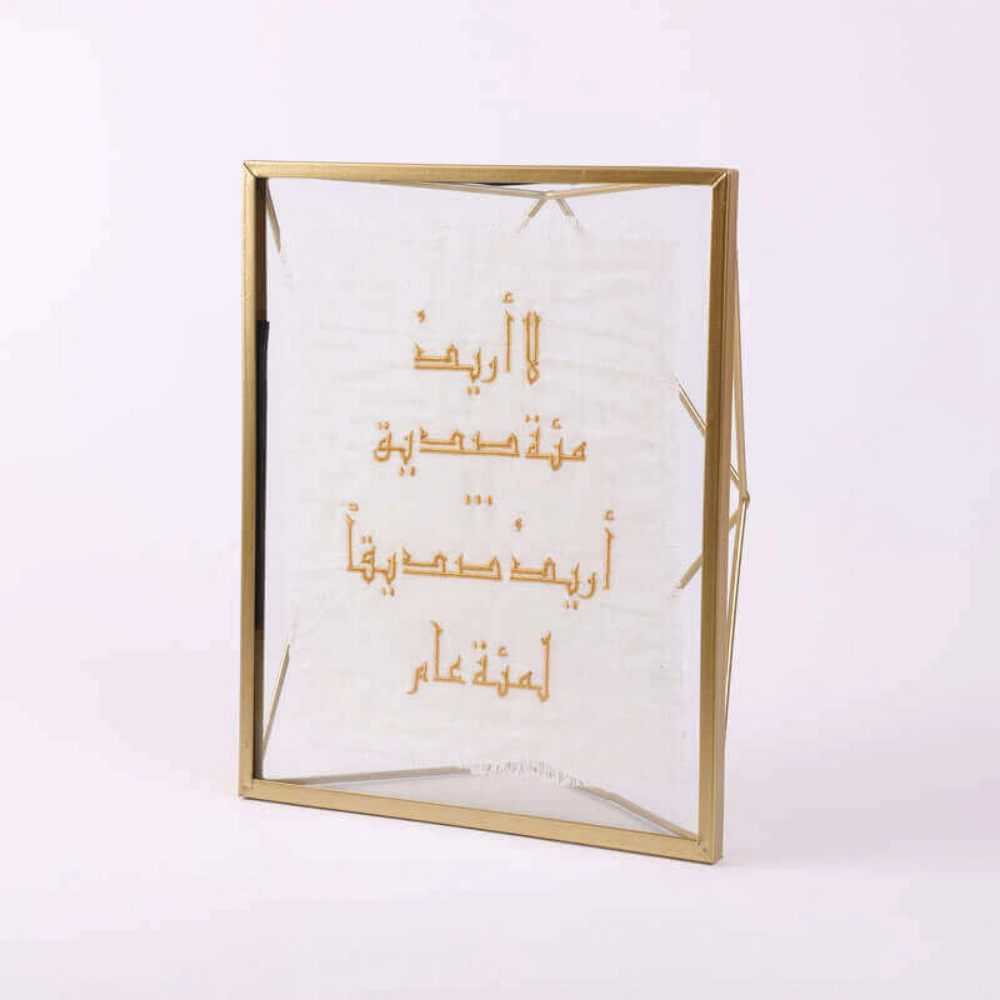 لا أريدُ
مئة صديق
...
أريدُ صديقاً
لمئة عام